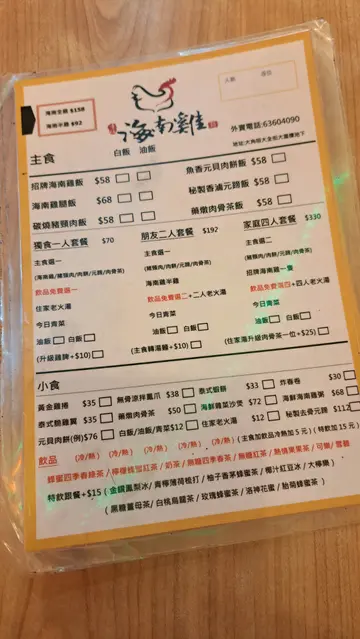 海南全雞 $158
海南半雞 $92
人數 座位
海南雞
白飯 油飯
外賣電話:63604090
主食
招牌海南雞飯 $58
海南雞腿飯 $68
碳燒豬頸肉飯 $58
魚香元貝肉餅飯 $58
秘製香滷元蹄飯 $58
藥燉肉骨茶飯 $58
獨食一人套餐 $70
主食選一
(海南雞/豬頸肉/肉餅/元蹄/肉骨茶)
飲品免費選一
住家老火湯
今日青菜
油飯 白飯
(升級雞髀+$10)
朋友二人套餐 $192
主食選一
(豬頸肉/肉餅/元蹄/肉骨茶)
海南雞半雞
飲品免費選二+二人老火湯
今日青菜
油飯 白飯
(主食轉湯麵+$10)
家庭四人套餐 $330
主食選二
(豬頸肉/肉餅/元蹄/肉骨茶)
招牌海南雞一隻
飲品免費選四+四人老火湯
今日青菜
油飯 白飯
(住家湯升級肉骨茶一位+$25)
小食
黃金雞捲 $35
無骨涼拌鳳爪 $38
泰式蝦餅 $33
炸春卷 $30
泰式脆雞翼 $35
藥燉肉骨茶 $50
海鮮雜菜沙煲 $72
海鮮海南雞粥 $68
元貝肉餅(例)$76
白飯/油飯/青菜$12
住家老火湯 $12
秘製去骨元蹄 $112
飲品 (冷/熱) (冷/熱) (冷/熱) (冷/熱) (冷/熱) (主食加飲品冷熱加 5 元) (特飲加 15 元)
蜂蜜四季春綠茶/檸檬桃雪紅茶/奶茶/無糖四季春茶/無糖紅茶/熱情果果茶/可樂/雪碧
特飲跟餐+$15 (金鑽鳳梨冰/青檸薄荷梳打/柚子香茅蜂蜜茶/椰汁紅豆冰/大檸樂)
(黑糖薑母茶/白桃烏龍茶/玫瑰蜂蜜茶/洛神花蜜/胎菊蜂蜜茶)